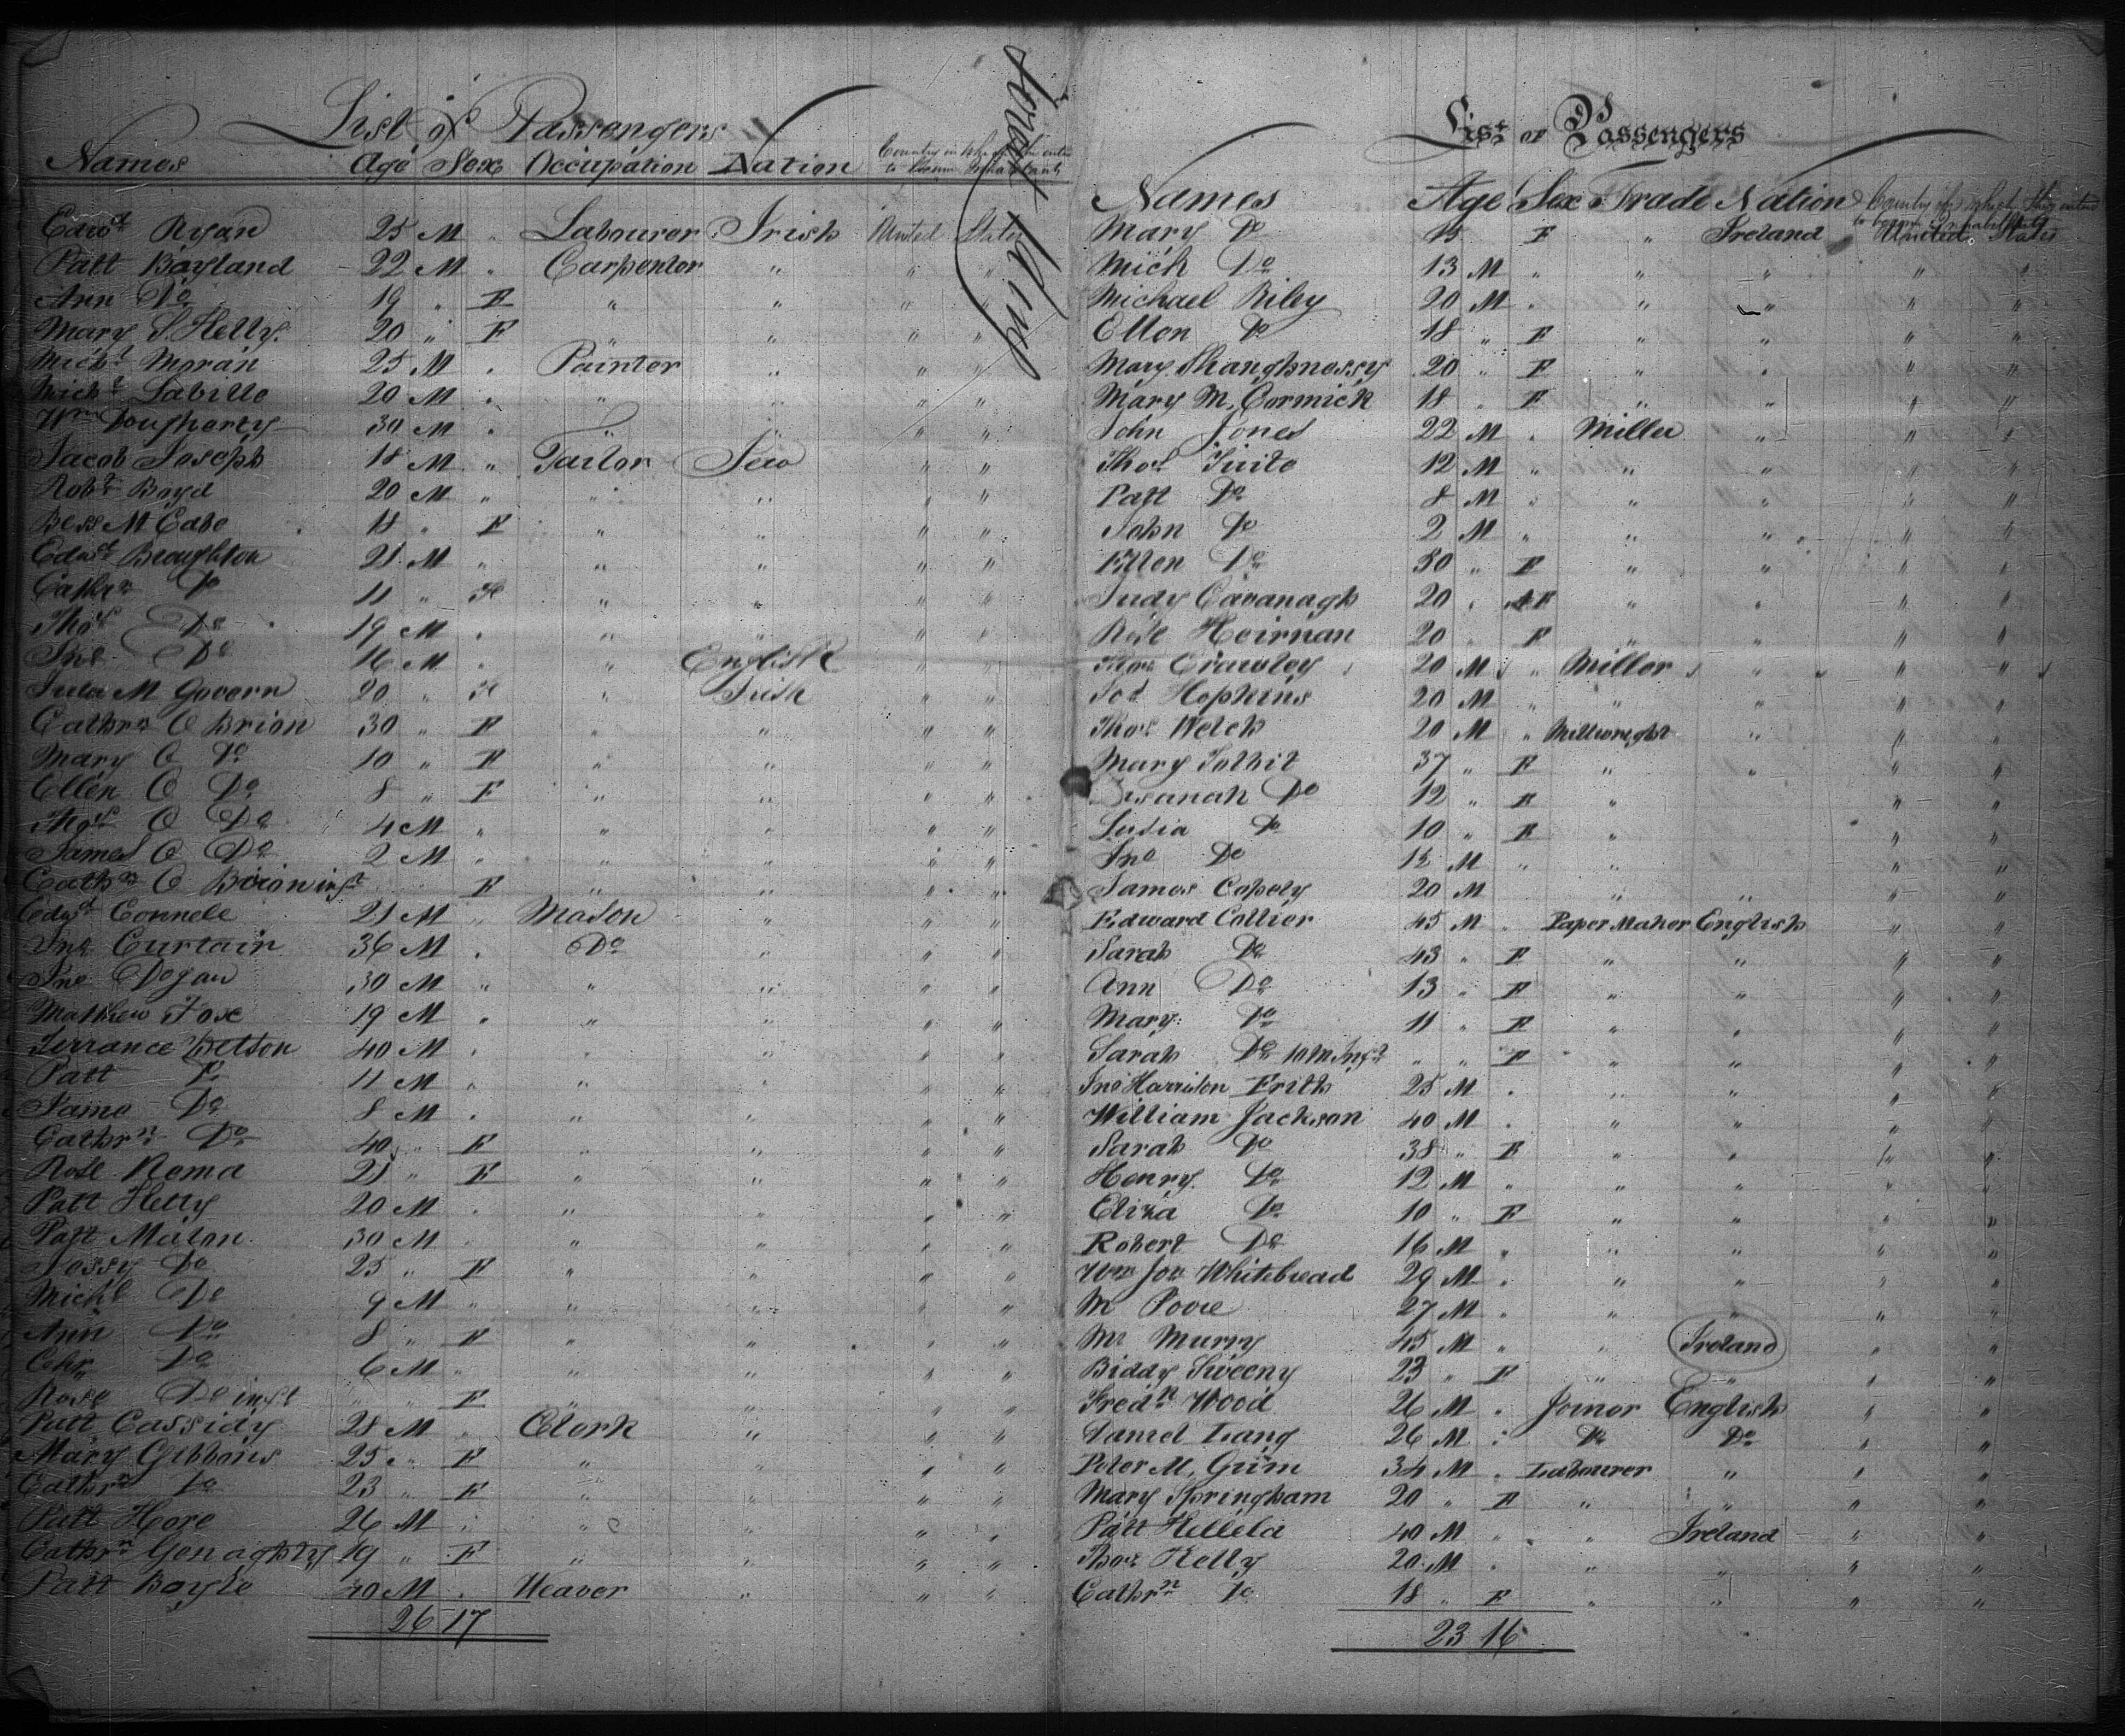 List of Passengers
Names Age Sex Occupation Nation Country in to become Inhabitants
Edwd Ryan 25 M " Labourer Irish United States
Patt Boyland 22 M " Carpenter " " "
Ann Do 19 " F " " " "
Mary S. Kelly 20 " F " " " "
Michl Moran 25 M " Painter " " "
Michl 20 M " " " " "
Wm Dougharty 30 M " " " " "
Jacob Joseph 18 M " Tailor Jew " "
Robt Boyd 20 M " " " " "
Bess M Cabe 18 " F " " " "
Edwd Broughton 21 M " " " " "
Cathrn Do 11 " F " " " "
Thos Do 19 M " " " " "
Jno Do 16 M " " English " "
M Govern 20 " F " Irish " "
Cathrn O Brion 30 " F " " " "
Mary O Do 10 " F " " " "
Ellen O Do 8 " F " " " "
Thos O Do 4 M " " " " "
James O Do 2 M " " " " "
Cathn O Brion inft F " " " "
Edwd Connele 21 M " Mason " " "
Jno Curtain 36 M " Do " " "
Jno Dogan 30 M " " " " "
Mathew Foxe 19 M " " " " "
Terrance 40 M " " " " "
Patt Do 11 M " " " " "
Jame Do 8 M " " " " "
Cathrn Do 40 " F " " " "
Rose 21 " F " " " "
Patt Kelly 20 M " " " " "
Patt Malon 30 M " " " " "
Jessy Do 25 " F " " " "
Michl Do 9 M " " " " "
Ann Do 8 " F " " " "
Do 6 M " " " " "
Rose Do inft " " F " " " "
Patt Cassidy 28 M " Clerk " " "
Mary Gibbons 25 " F " " " "
Cathrn Do 23 " F " " " "
Patt Hore 26 M " " " " "
Cathrn 19 " F " " " "
Patt Boyle M " Weaver " " "
26 17
List of Passengers
Names Age Sex Trade Nation Country in which they intend to become Inhabitants
Mary Do 15 F " Ireland United States
Mich Do 13 M " " " " "
Michael Riley 20 M " " " " "
Ellen Do 18 " F " " " "
Mary Shaughnessy 20 " F " " " "
Mary M. Cormick 18 " F " " " "
John Jones 22 M " Miller " " "
Thos Tuite 12 M " " " " "
Patt Do 8 M " " " " "
John Do 2 M " " " " "
Ellen Do 30 " F " " " "
Judy Cavanagh 20 " F " " " "
Rose Heirnan 20 " F " " " "
Thos Crawley 20 M " Miller " " "
Jos Hopkins 20 M " " " " "
Thos Welch 20 M " Millwright " " "
Mary 37 " F " " " "
Susanah Do 12 " F " " "
Do 10 " F " " "
Jno Do 12 M " " " "
James 20 M " " " "
Edward Collier 45 M " Paper Maker English " "
Sarah Do 43 " F " " " "
Ann Do 13 " F " " " "
Mary Do 11 " F " " " "
Sarah Do 10 M Inft " " F " " " "
Jno Harrison Frith 25 M " " " " "
William Jackson 40 M " " " " "
Sarah Do 38 " F " " " "
Henry Do 12 M " " " " "
Eliza Do 10 " F " " " "
Robert Do 16 M " " " " "
Wm Jon Whitebread 29 M " " " " "
M Poore 27 M " " " " "
Mr Murry 45 M " " Ireland " "
Biddy Sweeny 23 " F " " " "
Fredk Wood 26 M " Joiner English " "
Daniel Lang 26 M " Do Do " "
Peter M. Grim 34 M " Labourer " " "
Mary Springham 20 " F " " " "
Patt 40 M " " Ireland " "
Thos Kelly 20 M " " " " "
Cathrn Do 18 " F " " " "
23 16